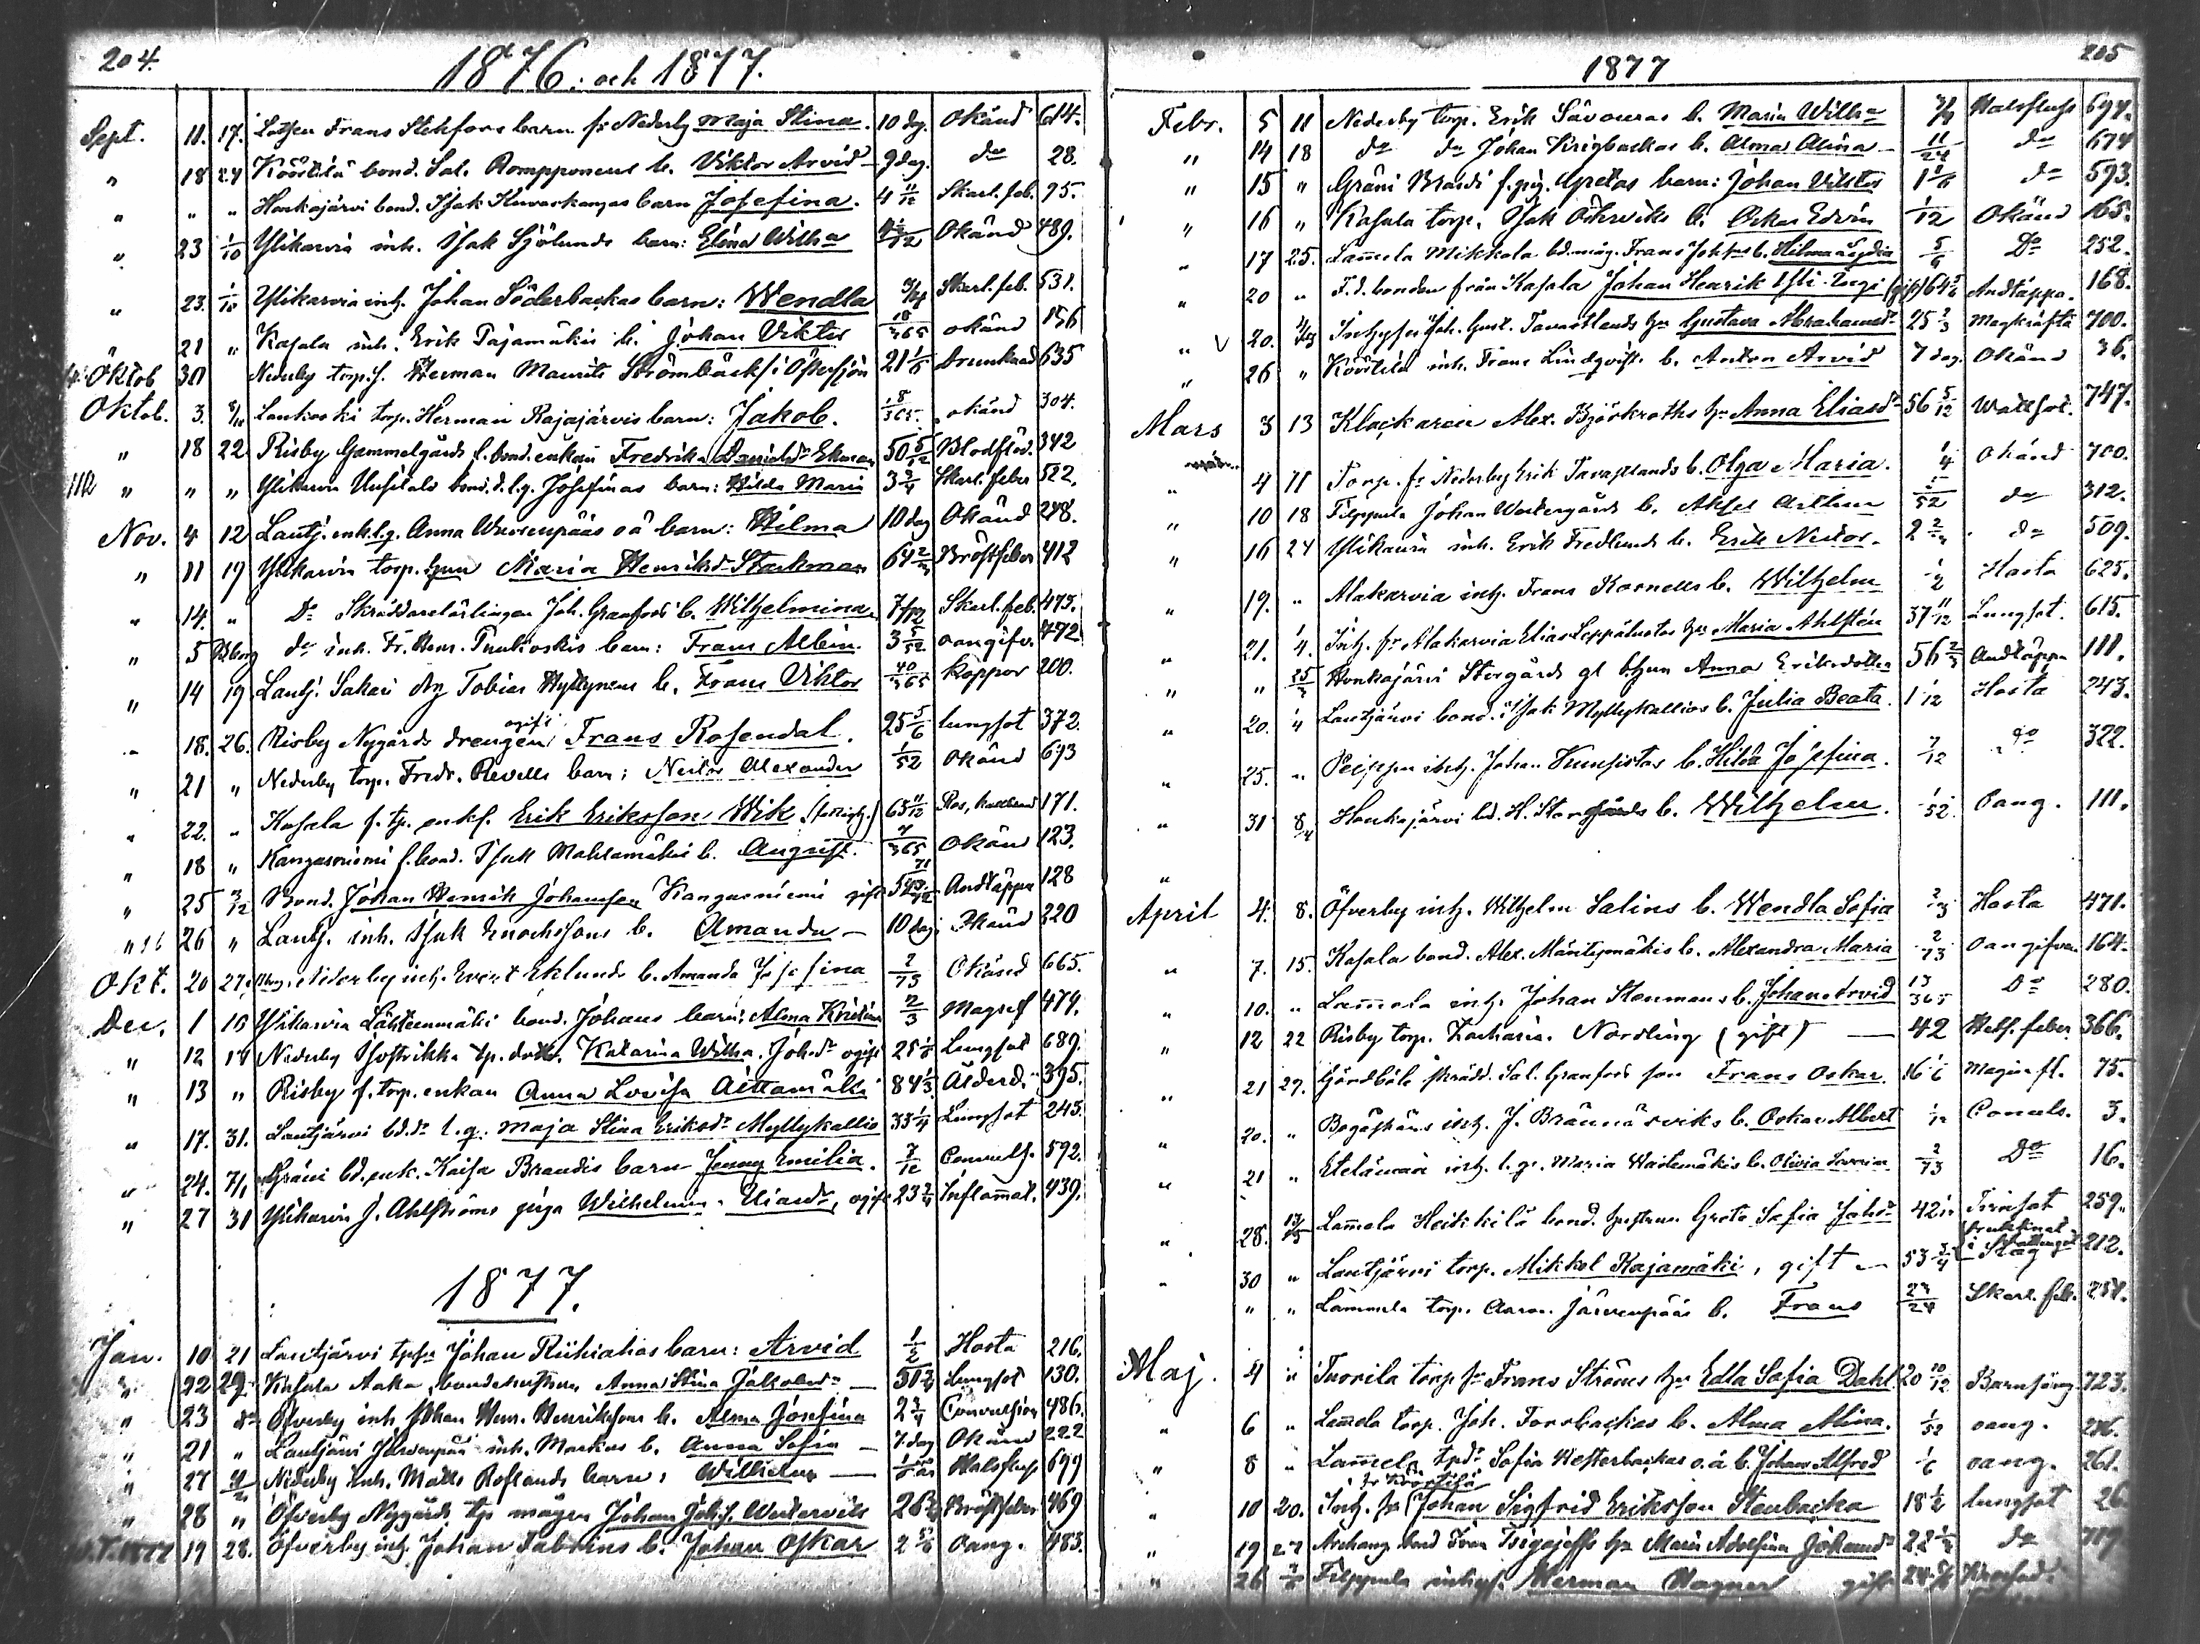 204.
1876. och 1877.
Sept. 11. 17. Lotsen Frans Stekfors barn fr Nederby Maja Stina. 10 dag. Okänd 614.
" 18 24 Köörtilä bond. Sal. Rompponens b. Viktor Arvid 9 dag. do 28.
" " " Honkajärvi bond. Isak Kuvaskangas barn Josefina. 4 11/12 Skarl.feb. 95.
" 23 1/10 Ylikarvia inh. Isak Sjölunds barn: Elina Wilha Okänd 489.
" 23. 1/10 Ylikarvia inh. Johan Söderbackas barn: Wendla 3/4 Skarl.feb. 531.
" 21 " Kasala inh. Erik Pajamäkis b. Johan Viktor 18/365 okänd 156
Oktob 30 Nederby torp.s. Herman Maurits Strömbäck i Östersjön 21 1/6 Drunknad 635
Oktob. 3. 8/10 Lankoski torp. Herman Rajajärvis barn: Jakob. 18/365. okänd 304.
" 18 22 Risby Gammelgårds f. bond. enkan Fredrika Danielsdr Ekman 50 5/12 Blodflöd. 342
" " " Ylikarvia Uusitalo bond.d. l.q. Josefinas barn: Hilda Maria 3 3/4 Skarl.feber 522.
Nov. 4 12 Lautj. enk. l.q. Anna Wuorenpääs oä barn: Hilma 10 dag Okänd 248.
" 11 19 Ylikarvia torp. hun Maria Henriksdr Starkman 64 2/3 Bröstfeber 412
" 14. " Do Skräddarelärlingen Joh. Granfors b. Wilhelmina 7/12 Skarl.feb. 475.
" 5 do inh. Fr. Henr. Tuulikoskis barn: Frans Albin. 3 5/12 oangifv. 472
" 14 19 Lautj. Sakari drg Tobias Myllynens b. Frans Viktor 40/365 Koppor 200.
" 18. 26. Risby Nygårds drengen ogift Frans Rosendal. 25 5/6 lungsot 372.
" 21 " Nederby torp. Fredr. Revells barn: Nestor Alexander 1/52 okänd 693
" 22. " Kasala f. tp. enkl. Erik Eriksson Wik 65 11/12 171.
" 18 " Kangasniemi f. bond. Isak Mahlamäkis b. August. 7/365 okänd 123.
" 25 3/12 Bond. Johan Henrik Johansson Kangasniemi gift Andtäppa 128
" 26 " Lautj. inh. Isak Enochssons b. Amanda 10 dag Okänd 220
Okt. 20 27. Nederby inh. Evert Eklunds b. Amanda Josefina 2/73 Okänd 665.
Dec. 1 10 Ylikarvia Lähteenmäki bond. Johans barn: Alma Kristina 2/3 Magref 479.
" 12 17 Nederby tp. dottr. Katarina Wilha. Joh.dr ogift 25 1/6 Lungsot 689.
" 13 " Risby f. torp. enkan Anna Lovisa Aittamäki 84 1/3 Ålderd. 395.
" 17. 31. Lautjärvi bd.dr l.q. Maja Stina Eriksdr Myllykallio 33 1/4 Lungsot 245.
" 24. 7/1 Gräni bd. enk. Kaisa Brandis barn Jenny Emilia. 7/12 Convuls. 592.
" 27 31 Ylikarvia J. Ahlströms piga Wilhelmina Eliasdr, ogift 23 3/4 Inflamat. 439.
1877.
Jan. 10 21 Lautjärvi Johan Riihiahos barn: Arvid 1/2 Hosta 216.
" 22 29. Kasala Aaka bondehustrun Anna Stina Jakobsdr Lungsot 130.
" 23 do Öfverby inh. Johan Henr. Henrikssons b. Alma Josefina 2 3/4 Convulsion 486.
" 21 " Lautjärvi Järvenpää inh. Markus b. Anna Sofia 7 dag Okänd 222
" 27 4/2 Nederby Inh. Matts Roslunds barn: Wilhelm Halsfluss 699
" 28 " Öfverby Nygårds tp mågen Johan Joh.s. Westervik Bröstfeber 469
19 28. Öfverby inh. Johan Fabrins b. Johan Oskar 2 5/6 Oang. 483.
205
1877
Febr. 5 11 Nederby torp. Erik Savonens b. Maria Wilha Halsfluss 697.
" 14 18 do do Johan Krigbackas b. Alma Alina 11/24 do 674
" 15 " Gräni Brandi f. pig. Gretas barn: Johan Viktor 1 1/6 do 593.
" 16 " Kasala torp. Isak Ockreviks b. Oskar Edvin 1/12 Okänd 165.
" 17 25. Lamela Mikkola bd. måg. Frans Johns b. Hilma Lydia 5/6 Do 252.
" 20 " F.d. bonden från Kasala Johan Henrik Yli-Torgi (gift) 64 Andtäppa. 168.
" 20. 4/3 Inhyses Joh. Gust. Tavastlands hu Gustava Abrahamsdr 25 2/3 Magkräfta 700.
" 26 " Köörtilä inh. Frans Lindqvists b. Anton Arvid 7 dag. Okänd 36.
Mars 3 13 Klockaren Alex. Björkroths hu Anna Eliasdr 56 5/12 Wattsot. 747.
" 4 11 Torp. fr Nederby Erik Tavastlands b. Olga Maria. 1/4 Okänd 700.
" 10 18 Filppula Johan Westergårds b. Aksel Arthur 5/52 do 312.
" 16 24 Ylikarvia inh. Erik Fredlunds b. Erik Nestor. do 509.
" 19. " Alakarvia inh. Frans Kornells b. Wilhelm 1/2 Hosta 625.
" 21. 1/4. Inh. fr Alakarvia Elias Leppäluotos hu Maria Ahlstén 37 11/12 Lungsot. 615.
" " 25/3 Honkajärvi Storgårds gl bhun Anna Eriksdotter 56 2/3 Andtäppa 111.
" 20. 1/4 Lautjärvi bond. Isak Myllykallios b. Julia Beata. 1 1/12 Hosta 243.
" 25. " Peippu inh. Johan Kunnistos b. Hilda Josefina. 7/12 do 322.
" 31 8/4 Honkajärvi bd. H. Storgårds b. Wilhelm. 1/52 Oang. 111.
April 4. 8. Öfverby inh. Wilhelm Salins b. Wendla Sofia 2/3 Hosta 471.
" 7. 15. Kasala bond. Alex. Mäntymäkis b. Alexandra Maria 2/73 oangifven 164.
" 10. " Lamela inh. Johan Stenmans b. Johan Arvid 13/365 Do 280.
" 12 22 Risby torp. Zacharias. Nordling (gift) 42 Hetf.feber. 366.
" 21 29. Gårdböle skrädd. Sal. Granfors son Frans Oskar. 16 1/6 Magin fl. 75.
" 20. " inh. J. Brännärviks b. Oskar Albert 1/12 Convuls. 3.
" 21 " Etelämaa inh. l.q. Maria Haitemäkis b. Olivia 2/73 Do 16.
" 28. 13/5 Lamela Heikkilä bond. hustrun Greta Sofia Johsdr Tvinsot 259.
" 30 " Lautjärvi torp. Mikkel Kajamäki, gift 53 3/4 Slag 212.
" " " Lammela torp. Aaron Järvenpääs b. Frans 23/24 Skarl. feb. 254.
Maj. 4 " Tuorila torp. sr Frans Ströms hu Edla Sofia Dahl 20 10/12 Barnsäng 723.
" 6 " Lamela torp. Joh. Forsbackas b. Alma Alina. 1/52 oang.
" 8 " Lamela tpdr Sofia Westerbackas o.ä b. Johan Alfred 1/6 oang. 261.
" 10 20. Inh. sr fr Köörtilä Johan Sigfrid Eriksson Stenbacka 18 1/2 lungsot 26
" 19 27 Archang. bond Ivan hu Maria Adolfina Johansdr do 719
" 26 Filppula Herman Wagner gift